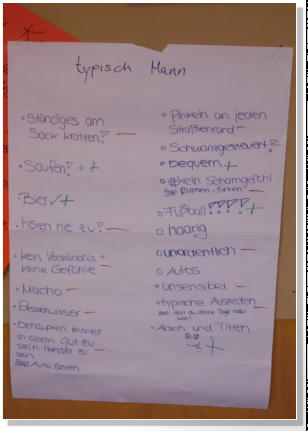 typisch Mann
• Ständiges am
Sack kratzen! —
• Saufen! + +
• Bier ✓ +
• hören nie zu! —
• kein Verständnis +
keine Gefühle —
• Macho —
• Besserwisser —
• behaupten immer
in allem gut zu
sein / besser zu —
sein
Bsp Auto fahren
o Pinkeln an jeden
Straßenrand —
o Schwanzgesteuert!? —
• bequem +
o kein Schamgefühl
Bsp Rülpsen, furzen —
o Fußball !!!! +
o haarig
o unordentlich —
o Autos
o unsensibel —
o typische Ausreden —
Bsp: Hast du deine Tage oder
was?
• Arsch und Titten
+